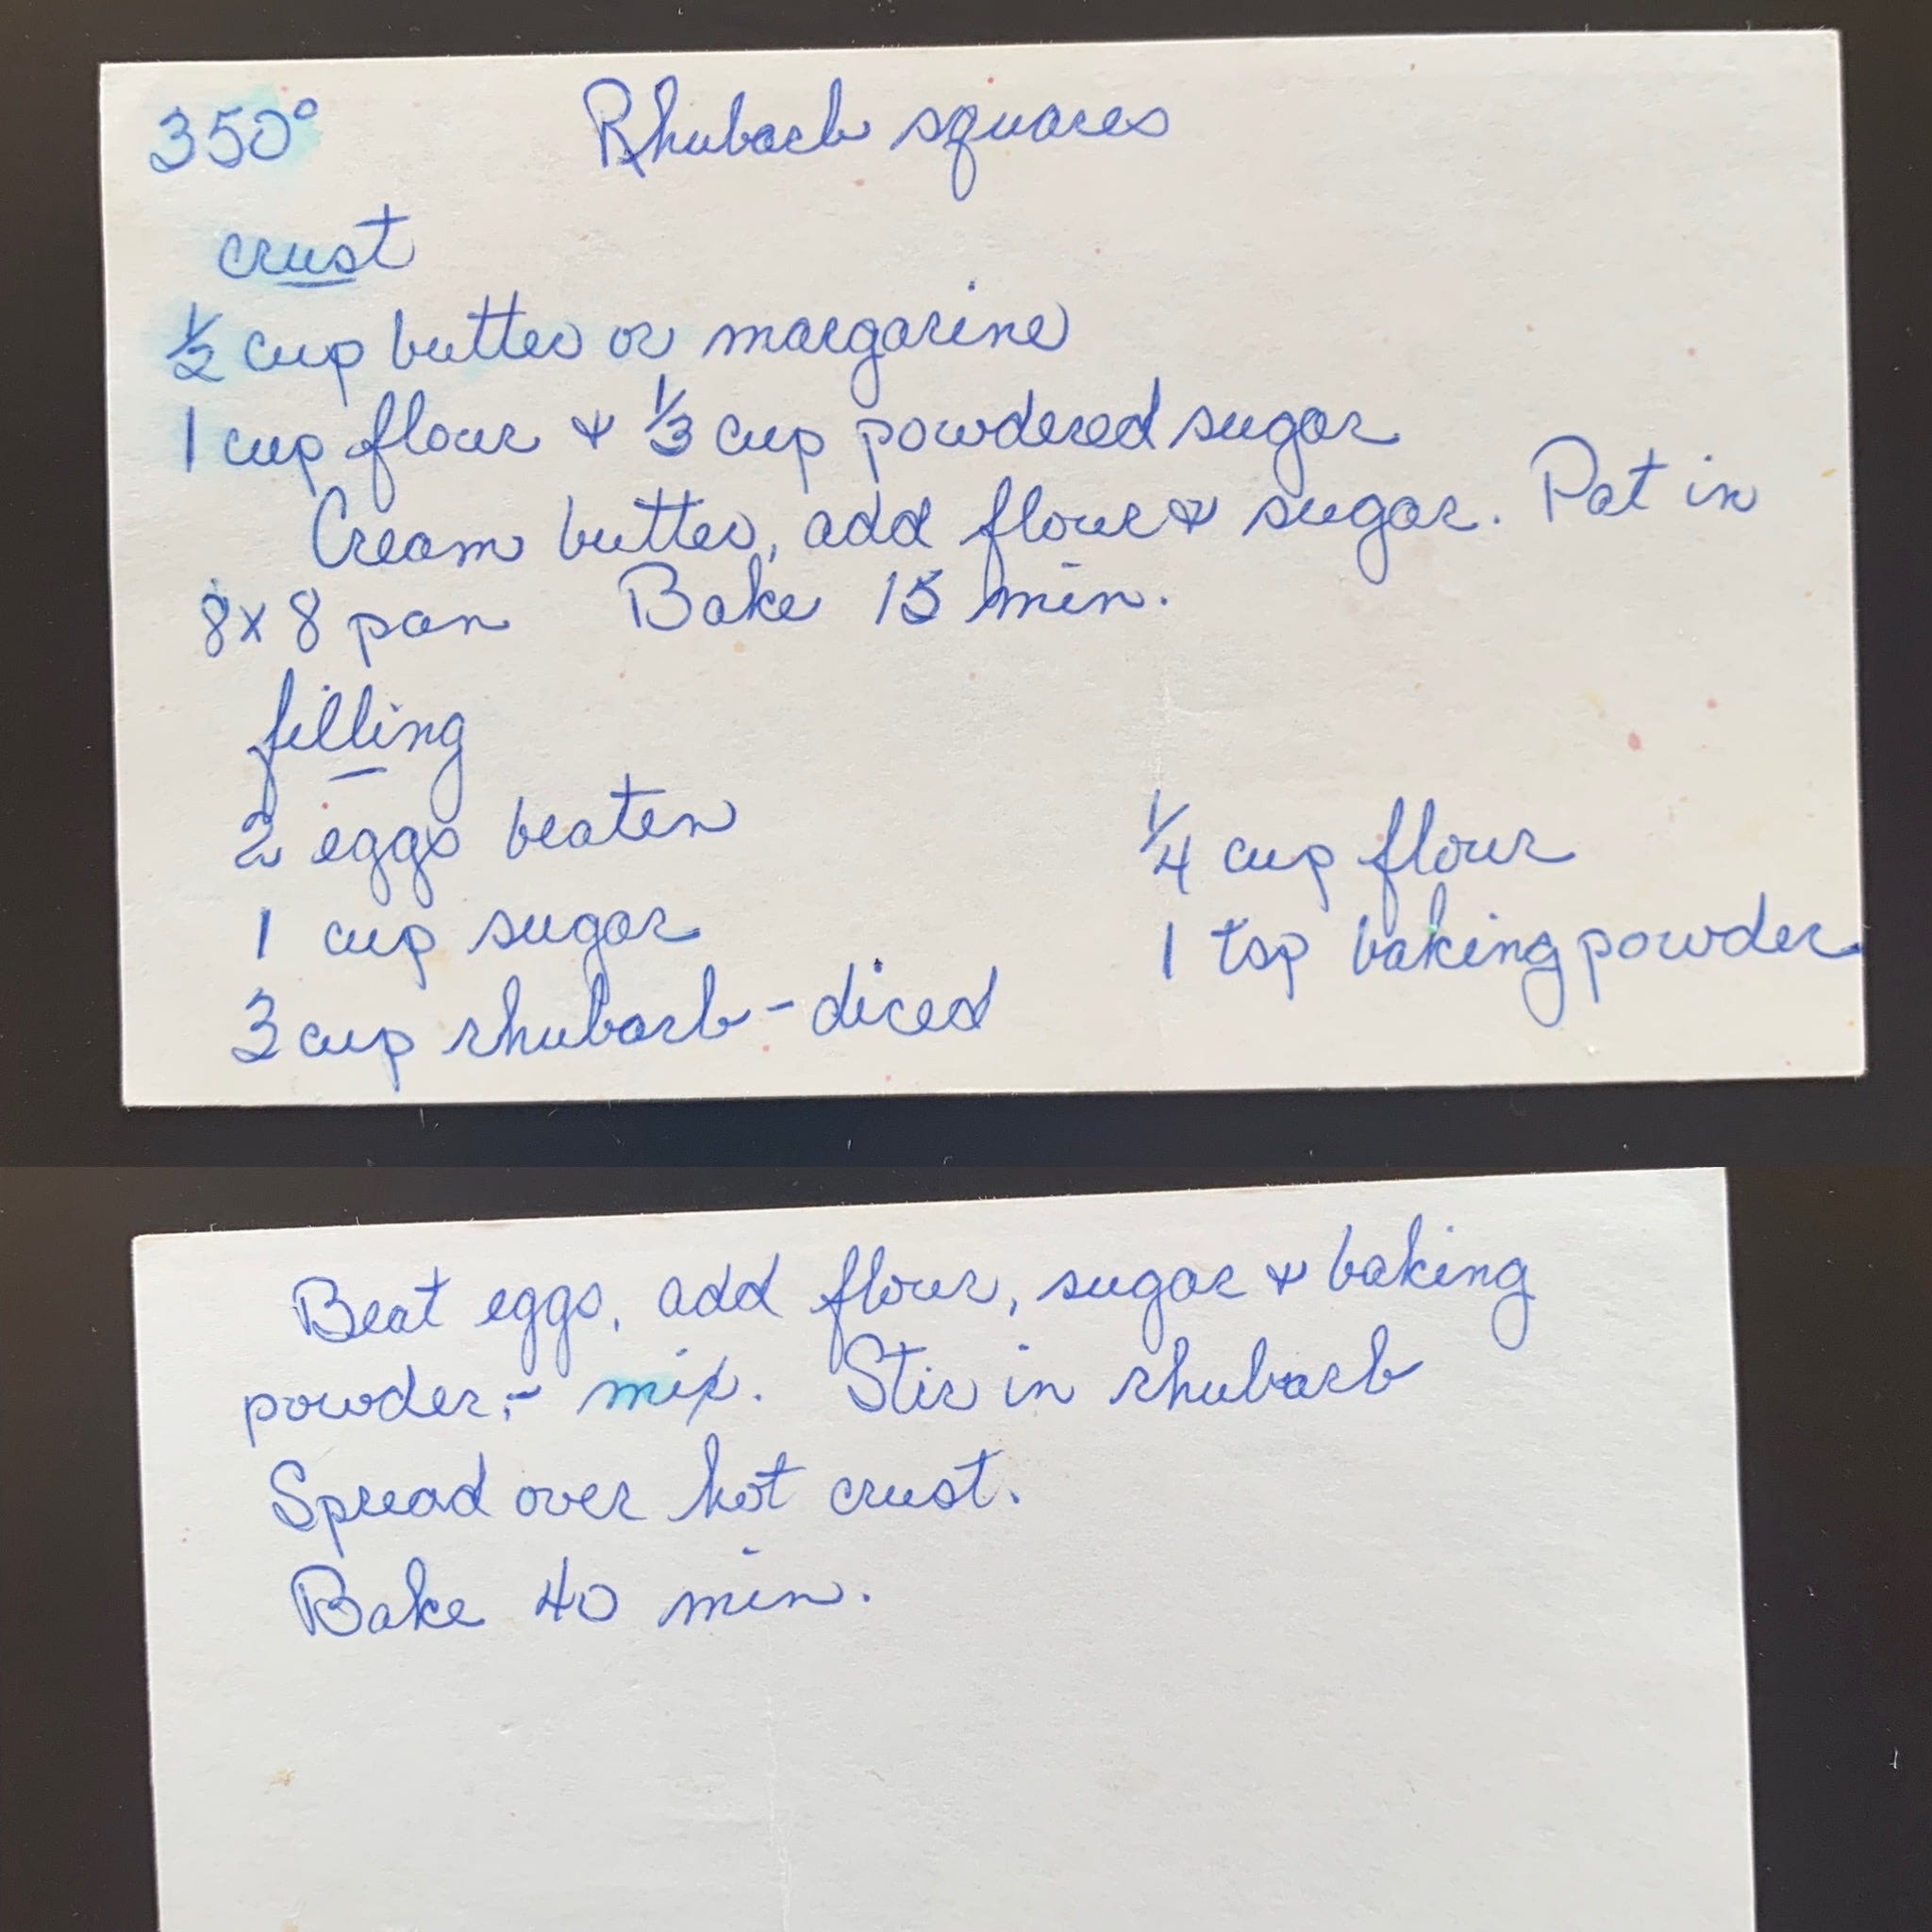 350° Rhubarb squares
crust
1/2 cup butter or margarine
1 cup flour & 1/3 cup powdered sugar
Cream butter, add flour & sugar. Pat in
8x8 pan Bake 15 min.
filling
2 eggs beaten 1/4 cup flour
1 cup sugar 1 tsp baking powder
3 cup rhubarb - diced
Beat eggs, add flour, sugar & baking
powder;- mix. Stir in rhubarb
Spread over hot crust.
Bake 40 min.